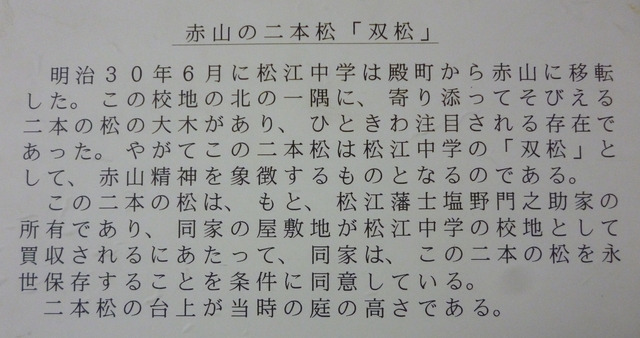 赤山の二本松「双松」
明治３０年６月に松江中学は殿町から赤山に移転
した。この校地の北の一隅に、寄り添ってそびえる
二本の松の大木があり、ひときわ注目される存在で
あった。やがてこの二本松は松江中学の「双松」と
して、赤山精神を象徴するものとなるのである。
この二本の松は、もと、松江藩士塩野門之助家の
所有であり、同家の屋敷地が松江中学の校地として
買収されるにあたって、同家は、この二本の松を永
世保存することを条件に同意している。
二本松の台上が当時の庭の高さである。